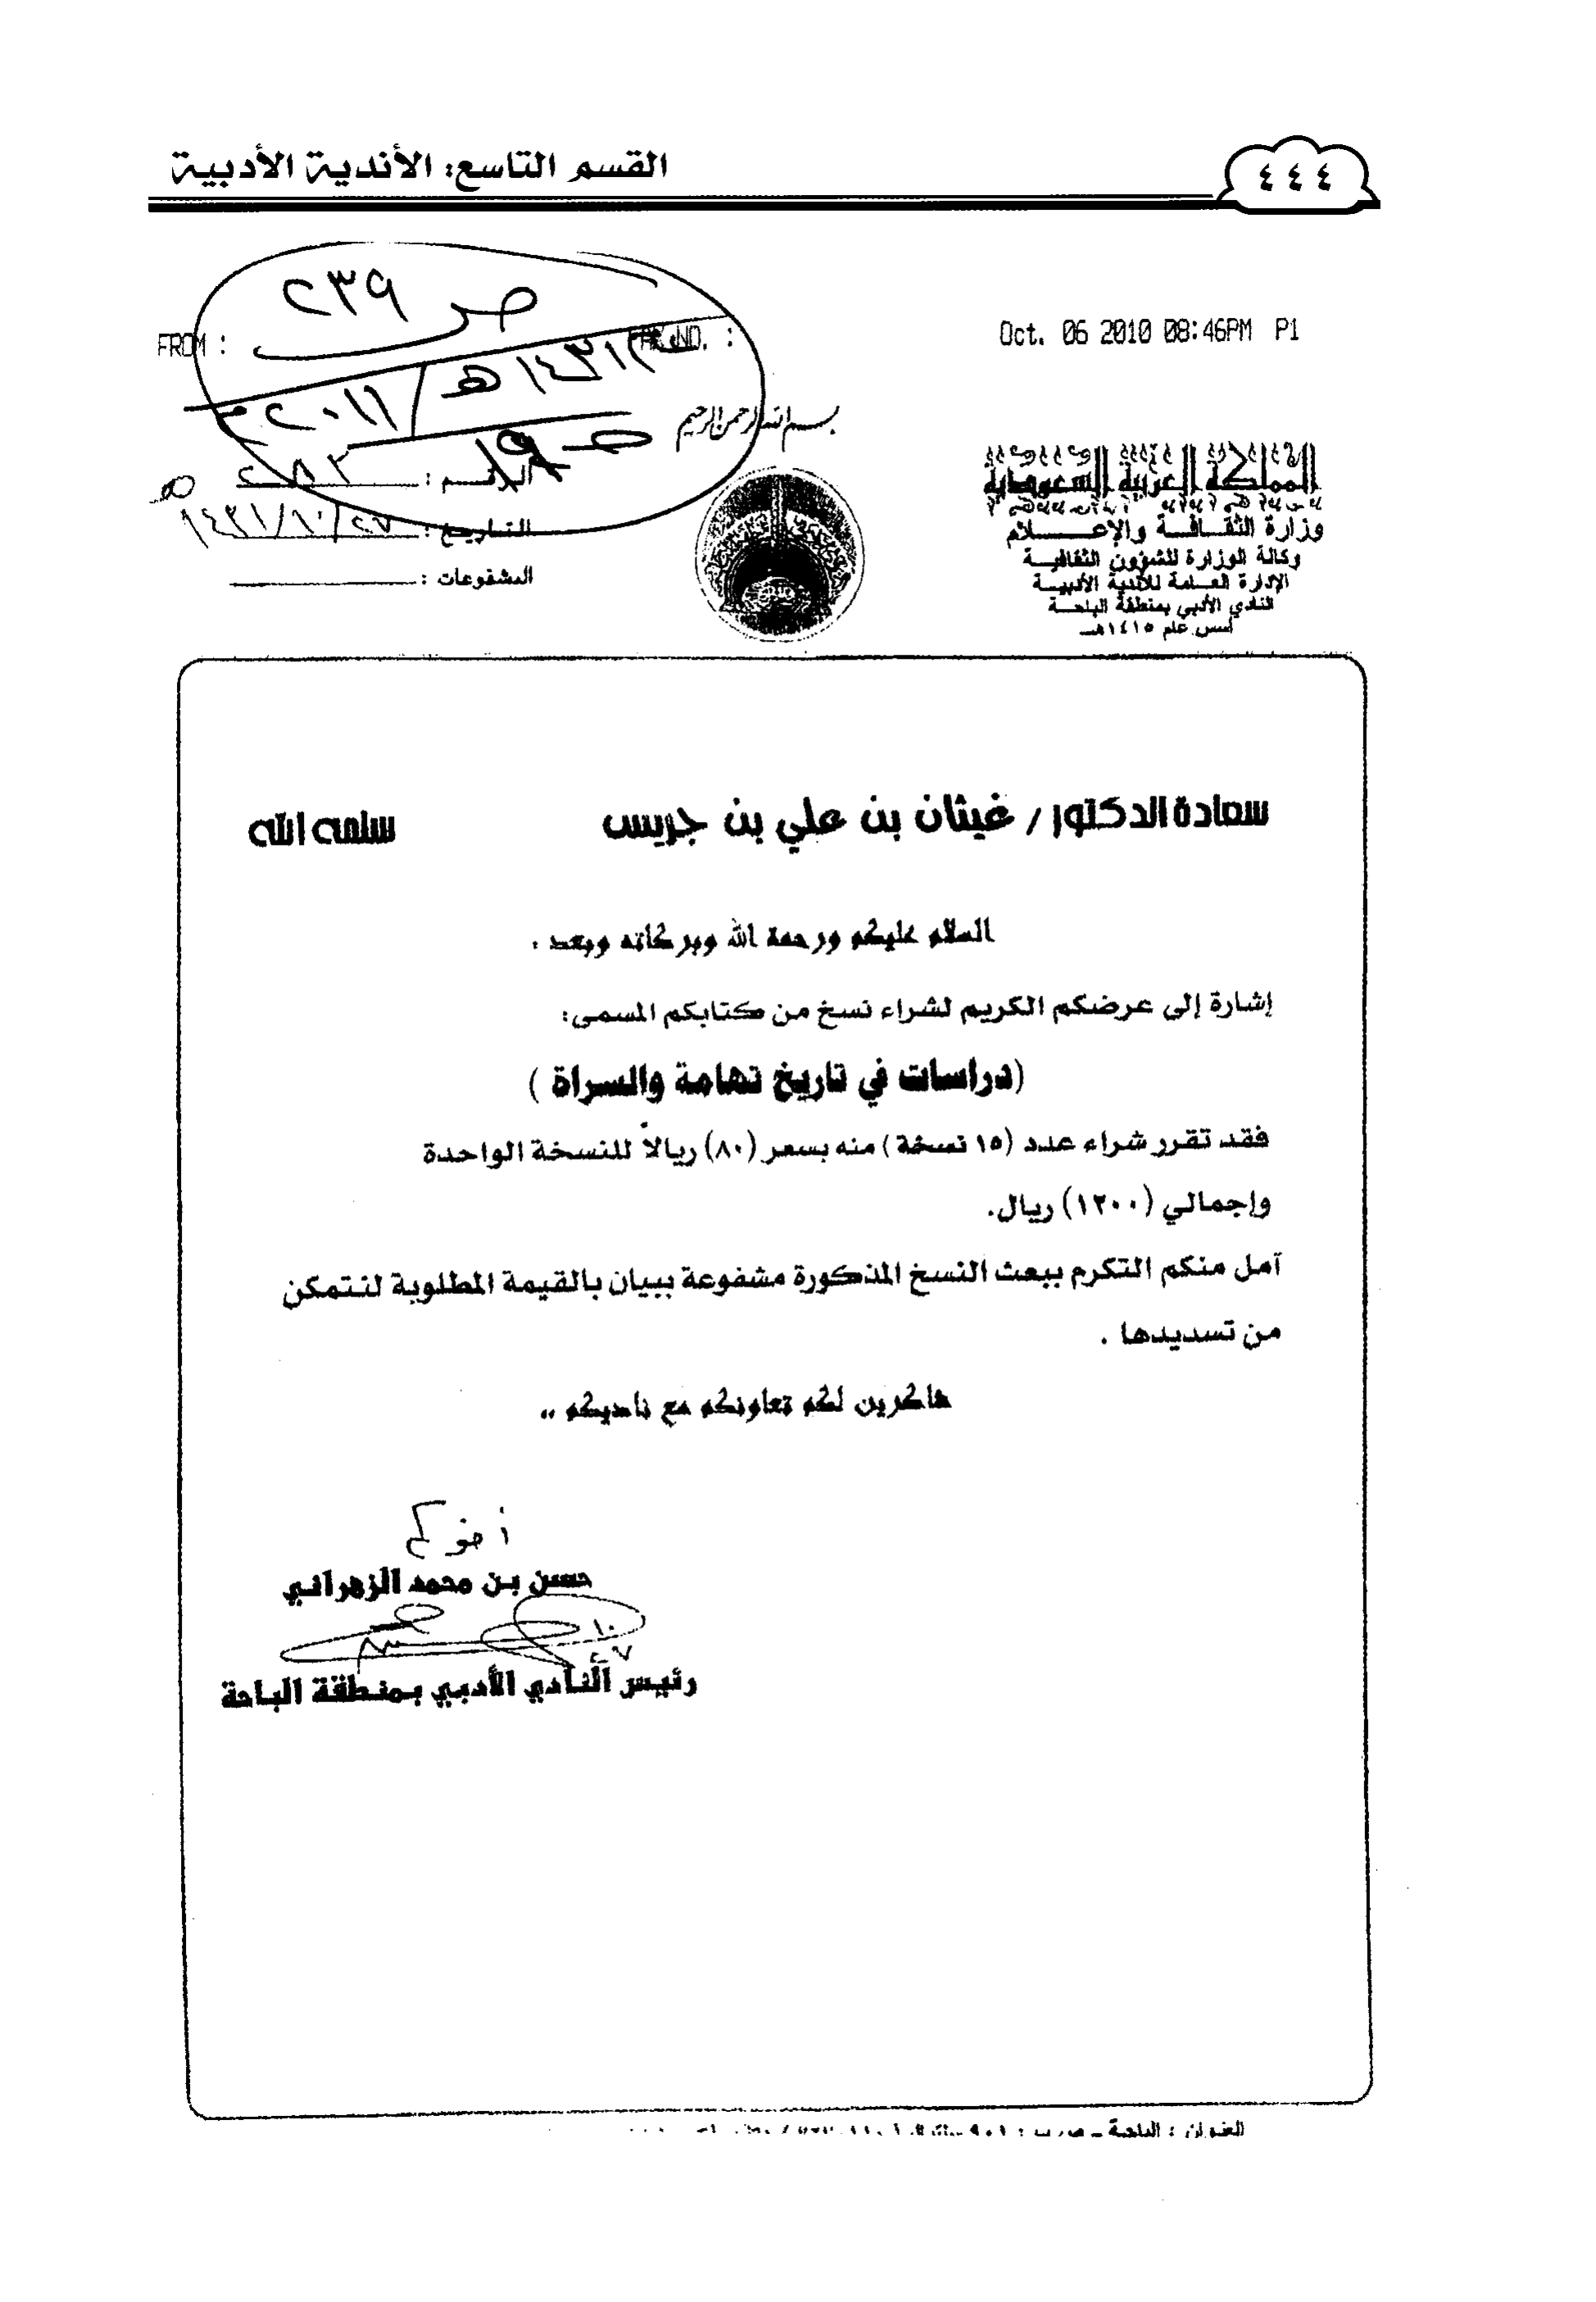 ٤٤٤
القسم التاسع: الأندية الأدبية
Oct. 06 2010 08:46PM P1
FROM :
FAX NO. :
ص ٢٣٩
١٤٣١هـ / ٢٠١١م
بسم الله الرحمن الرحيم
المملكة العربية السعودية
وزارة الثقافة والإعلام
وكالة الوزارة للشؤون الثقافية
الإدارة العامة للأندية الأدبية
النادي الأدبي بمنطقة الباحة
أسس عام ١٤١٥هـ
الرقم : ٢٨٣
التاريخ : ٢٧/١٠/١٤٣١
المشفوعات :
سعادة الدكتور / غيثان بن علي بن جريس سلمه الله
السلام عليكم ورحمة الله وبركاته وبعد :
إشارة إلى عرضكم الكريم لشراء نسخ من كتابكم المسمى:
(دراسات في تاريخ تهامة والسراة )
فقد تقرر شراء عدد (١٥ نسخة) منه بسعر (٨٠) ريالاً للنسخة الواحدة
وإجمالي (١٢٠٠) ريال.
آمل منكم التكرم ببعث النسخ المذكورة مشفوعة ببيان بالقيمة المطلوبة لنتمكن
من تسديدها .
شاكرين لكم تعاونكم مع ناديكم ،،
أخوكم
حسن بن محمد الزهراني
رئيس النادي الأدبي بمنطقة الباحة
العنوان : الباحة -